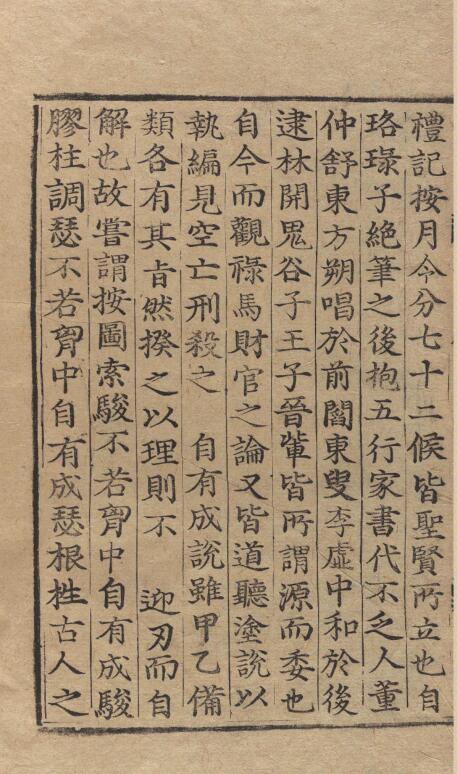 禮記按月令分七十二候皆聖賢所立也自
珞琭子絶筆之後抱五行家書代不乏人董
仲舒東方朔唱於前閻東叟李虛中和於後
逮林開鬼谷子王子晉輩皆所謂源而委也
自今而觀祿馬財官之論又皆道聽塗說以
執編見空亡刑殺之　自有成說雖甲乙備
類各有其旨然揆之以理則不　迎刃而自
解也故嘗謂按圖索駿不若胷中自有成駿
膠柱調瑟不若胷中自有成瑟根性古人之